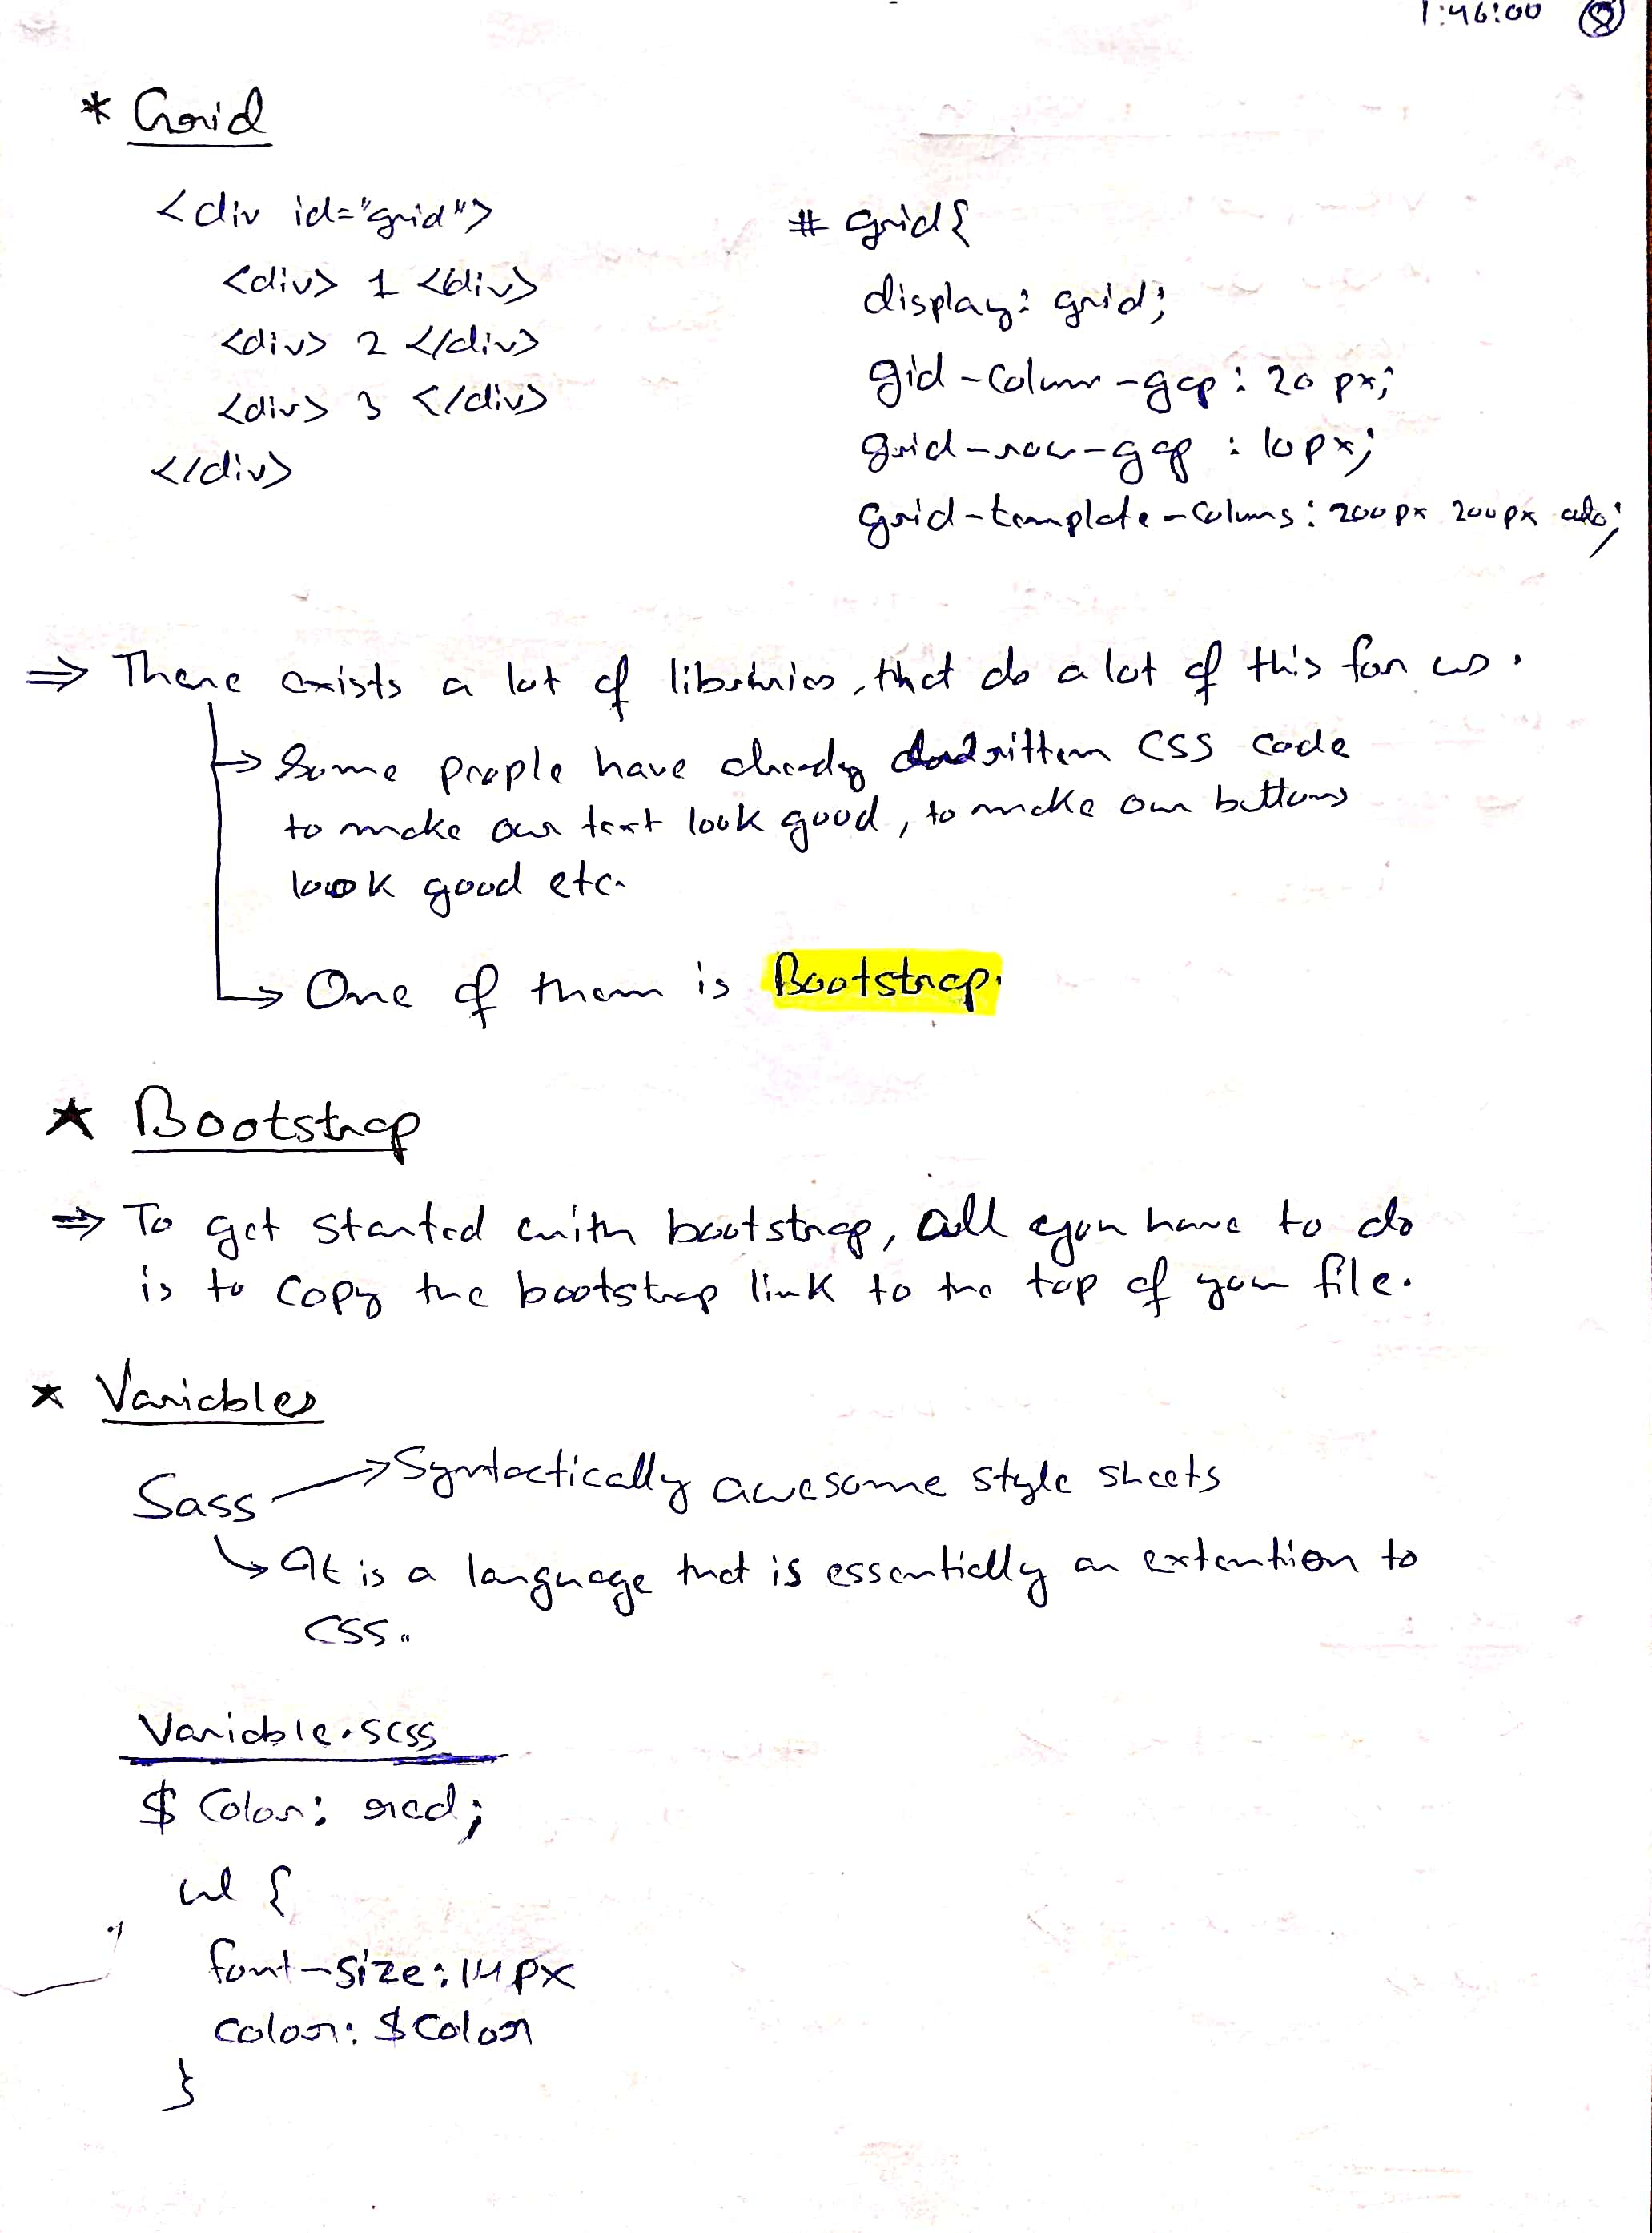 1:46:00 8
* Grid
<div id="grid">
<div> 1 </div>
<div> 2 </div>
<div> 3 </div>
</div>
# grid{
display: grid;
gid-Column-gap: 20 px;
grid-row-gap : 10px;
grid-template-Colums: 200px 200px auto;
⇒ There exists a lot of libraries, that do a lot of this for us.
→ Some people have already written CSS code
to make our text look good, to make our buttons
look good etc.
→ One of them is Bootstrap.
★ Bootstrap
⇒ To get started with bootstrap, all you have to do
is to copy the bootstrap link to the top of your file.
★ Variables
Sass → Syntactically awesome style sheets
→ It is a language that is essentially an extention to
CSS.
Variable.scss
$ Color: red;
ul {
font-size: 14px
color: $Color
}